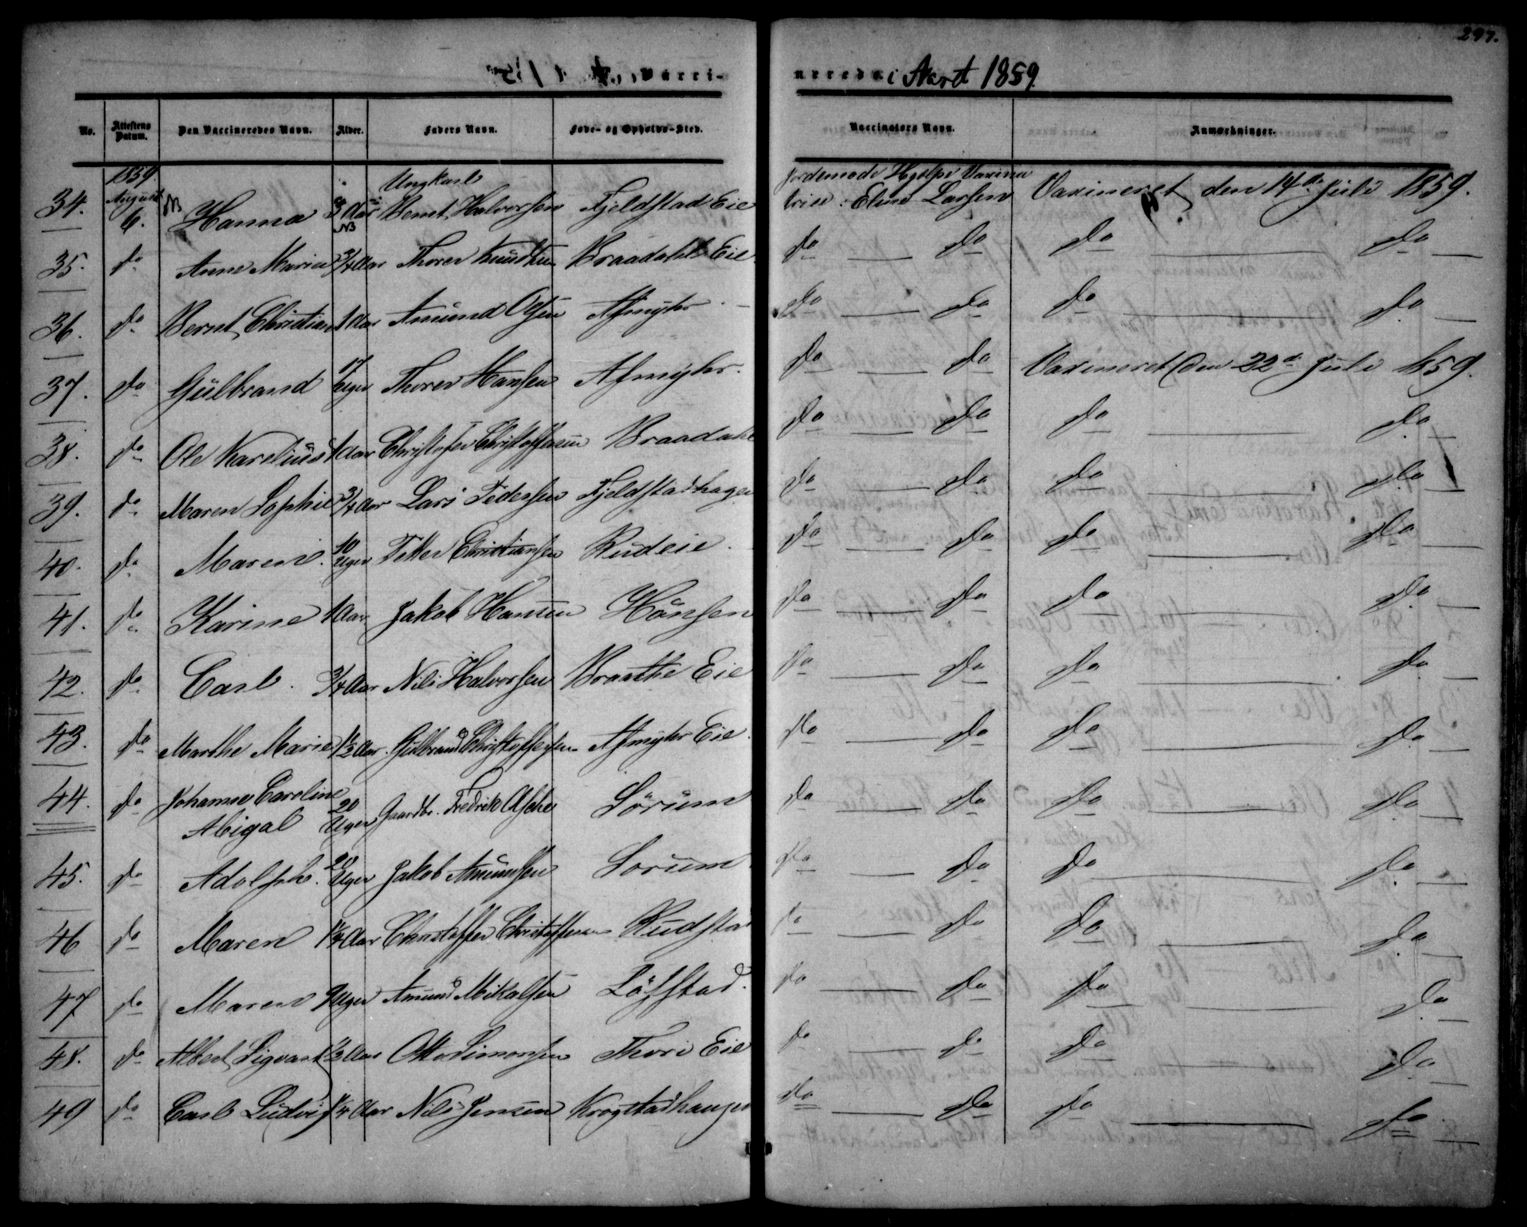 297.
Vacci-nerede i Aaret 1859.
No. Attestens Datum. Den Vaccineredes Navn. Alder. Faders Navn. Føde- og Opholds-Sted. Vaccinators Navn. Anmærkninger.
34. 1859 August 6. Hanna 3 Aar NB Ungkarl Bernt Halvorsen Fjeldstad Eie Jordemoder Hjelpe Vaxina trise: Elene Larsen Vaxineret den 14de Juli 1859.
35. do Anne Maria 3/4 Aar Thorer Knudsen Braadahl Eie do do do do
36. do Bernt Christian 1 Aar Amund Olsen Asmyhr do do do do
37. do Gulbrand 17 Uger Thorer Hansen Asmyhr. do do Vaxineret den 22de Juli 1859.
38. do Ole Karelius 1 Aar Christofer Christoffersen Braadahl do do do do
39. do Maren Sophie 3/4 Aar Lars Pedersen Fjeldstadhagen do do do do
40. do Maren 10 Uger Peder Christiansen Rudeie do do do do
41. do Karine 1 Aar Jakob Hansen Hønsen do do do do
42. do Carl 3/4 Aar Nils Halvorsen Braathe Eie do do do do
43. do Marthe Marie 1/2 Aar Gulbrand Christoffersen Asmyhr Eie. do do do do
44. do Johanne Caroline Abigal 20 Uger Gaardbr. Fredrik Asche Sørum do do do do
45. do Adolph 20 Uger Jakob Amundsen Sørum do do do do
46 do Maren 1/4 Aar Christoffer Christoffersen Rudsta do do do do
47 do Maren 9 Uger Amund Mikalsen Løfstad. do do do do
48. do Albert Sigvart 1/2 Aar Otto Simensen Thori Eie do do do do
49 do Carl Ludvig 1/4 Aar Nils Jensen Krogstadhaugen do do do do